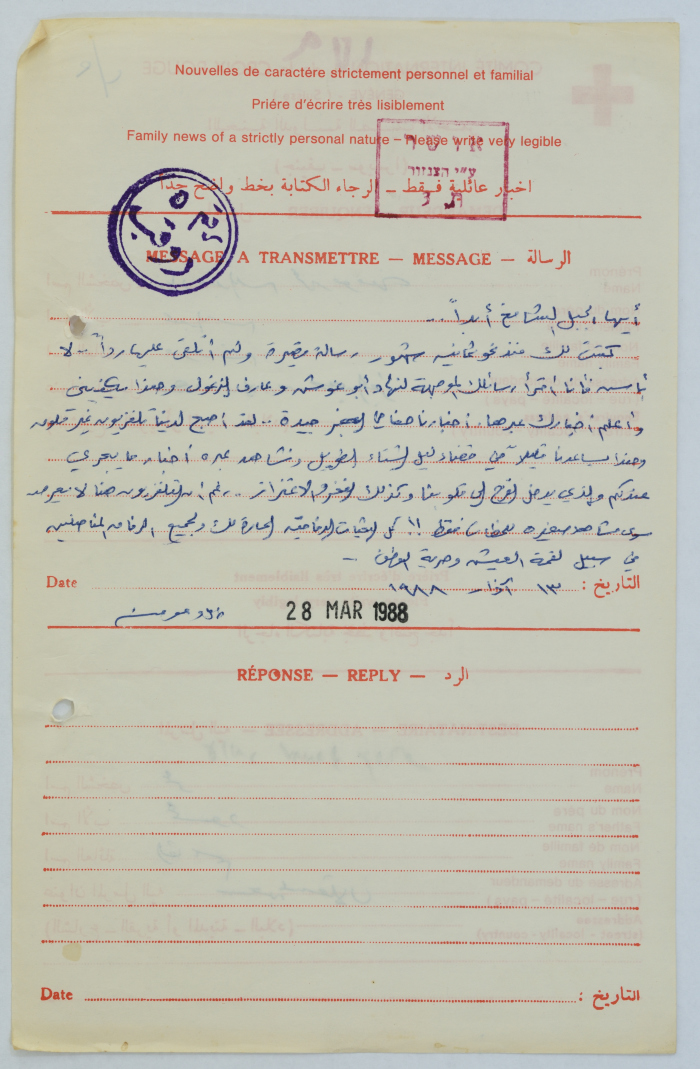 Nouvelles de caractére strictement personnel et familial
Priére d'écrire très lisiblement
Family news of a strictly personal nature – Please write very legible
اخبار عائلية فـقط ـ الرجاء الكتابة بخط واضح جداً
אושר
ע"י הצנזור
MESSAGE A TRANSMETTRE — MESSAGE — الرسالة
أيها الجبل الشامخ أبداً ..
كتبت لك منذ نحو ثمانية شهور رسالة قصيرة ولم أتلقى عليها رداً .. لا
بأس فأنا أقرأ رسائلك الموجهة لنهاد أبو غوش وعارف الزغول وهذا يكفيني
وأعلم اخبارك عبرها. أخبارنا جيدة .. لقد اصبح لدينا تلفزيون غير ملون
وهذا يساعدنا قليلا في قضاء ليل الشتاء الطويل ونشاهد عبره أخبار ما يجري
عندكم والذي يدخل الفرح إلى قلوبنا وكذلك الفخر والاعتزاز .. رغم ان التلفزيون هنا لا يعرض
سوى مشاهد صغيره فقط !! كل التحيات الرفاقية الحارة لك ولجميع الرفاق المناضلين
في سبيل لقمة العيش وحرية الوطن ..
Date ١٣ آذار ١٩٨٨ التاريخ :
28 MAR 1988
RÉPONSE — REPLY — الرد
Date التاريخ :